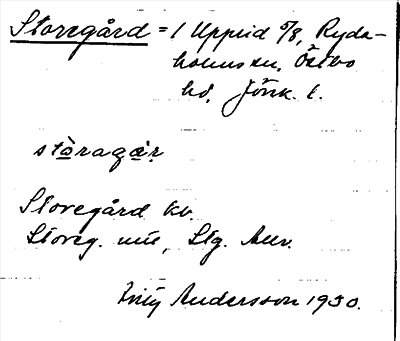 Storegård = 1 Uppeid 5/8, Ryda-
holms sn. Östbo
hd. Jönk. l.
stòragᴀ̀r
Storegård kv.
Storeg. mu, Stg.
Andersson 1930.